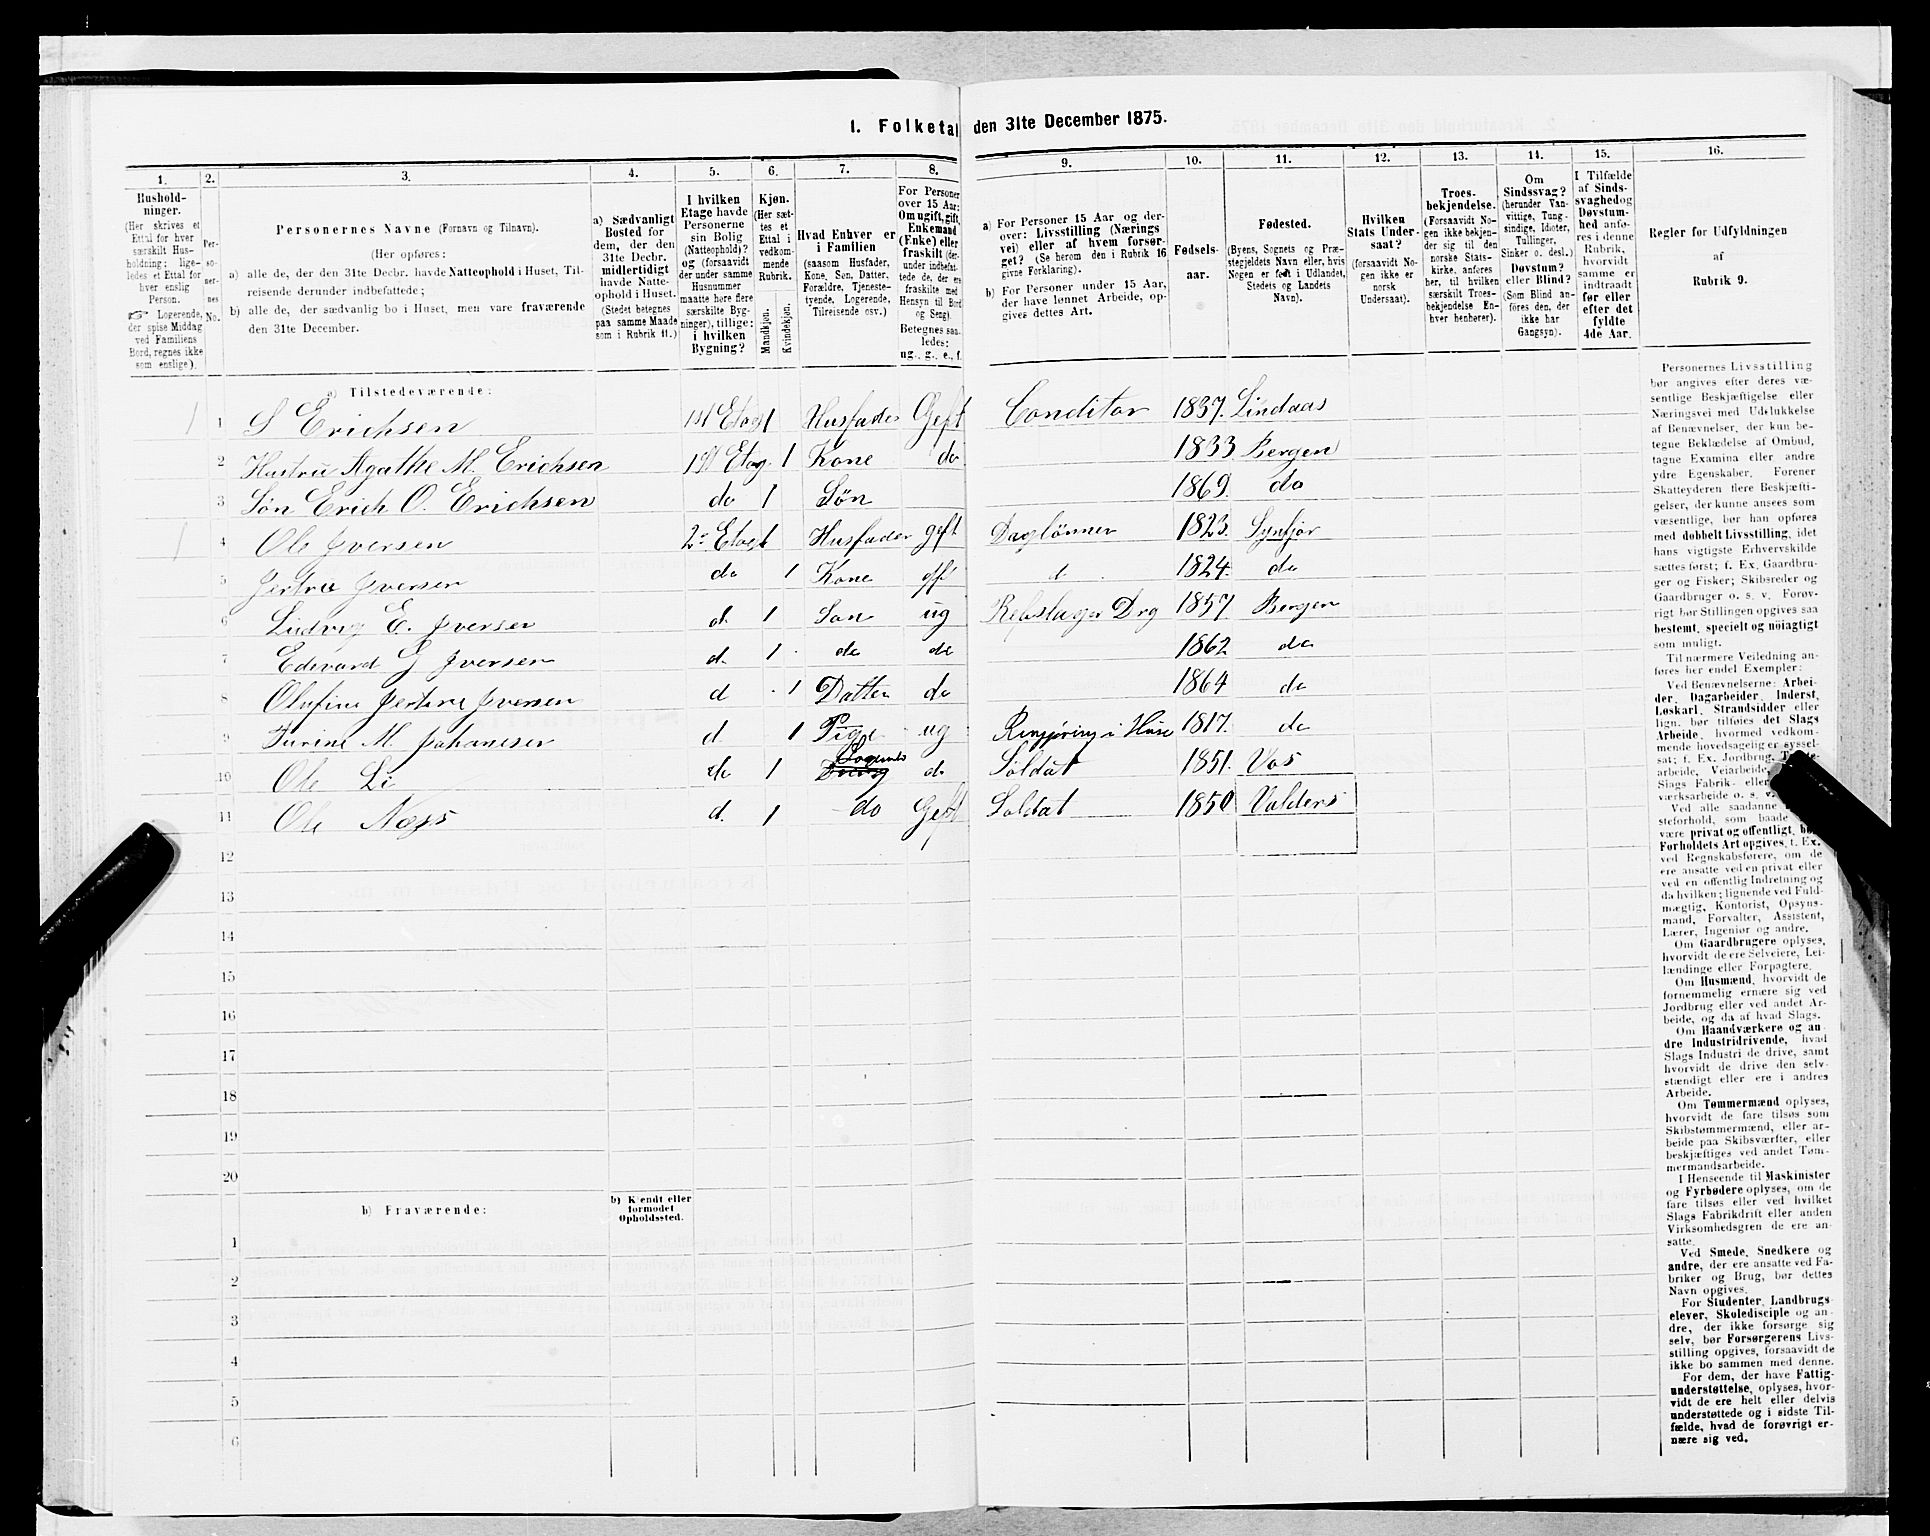 1. Folketal den 31te December 1875.
1. 2. 3. 4. 5. 6. 7. 8. 9. 10. 11. 12. 13. 14. 15. 16.
Husholdninger.
(Her skrives et
Ettal for hver
særskilt Husholdning;
ligeledes et Ettal for
hver enslig
Person.
☞ Logerende,
der spise Middag
ved Familiens
Bord, regnes ikke
som enslige).
Personernes No.
Personernes Navne (Fornavn og Tilnavn).
(Her opføres:
a) alle de, der den 31te Decbr. havde Natteophold i Huset, Tilreisende derunder indbefattede;
b) alle de, der sædvanlig bo i Huset, men vare fraværende
den 31te December.
a) Sædvanligt
Bosted for
dem, der den
31te Decbr.
midlertidigt
havde Natteophold i Huset.
(Stedet betegnes
paa samme Maade
som i Rubrik 11.)
I hvilken
Etage havde
Personerne
sin Bolig
(Natteophold)?
og (forsaavidt
der under samme
Husnummer
maatte høre flere
særskilte Bygninger), tillige:
i hvilken
Bygning?
Kjøn.
(Her sættes et
Ettal i
vedkommende
Rubrik.
Mandkjøn.
Kvindekjøn.
Hvad Enhver er
i Familien
(saasom Husfader,
Kone, Søn, Datter,
Forældre, Tjenestetyende, Logerende,
Tilreisende osv.)
For Personer
over 15 Aar:
Om ugift, gift,
Enkemand
(Enke) eller
fraskilt (derunder indbefattede de, der ere
fraskilte med
Hensyn til Bord
og Seng).
Betegnes saaledes:
ug., g., e., f.
a) For Personer 15 Aar og derover: Livsstilling (Næringsvei) eller af hvem forsørget? (Se herom den i Rubrik 16
givne Forklaring).
b) For Personer under 15 Aar,
der have lønnet Arbeide, opgives dettes Art.
Fødselsaar.
Fødested.
(Byens, Sognets og Præstegjeldets Navn eller, hvis
Nogen er født i Udlandet,
Stedets og Landets
Navn).
Hvilken
Stats Undersaat?
(forsaavidt Nogen ikke er
norsk
Undersaat).
Troesbekjendelse.
(Forsaavidt Nogen ikke bekjender sig til den
norske Statskirke, anføres
her, til hvilken
særskilt Troesbekjendelse Enhver henhører).
Om
Sindssvag?
(herunder Vanvittige, Tungsindige, Idioter,
Tullinger,
Sinker o. desl.)
Døvstum?
eller Blind?
(Som Blind anføres den, der
ikke har
Gangsyn).
I Tilfælde
af Sindssvaghed og
Døvstumhed anføres i denne
Rubrik,
hvorvidt
samme er
indtraadt
før eller
efter det
fyldte
4de Aar.
Regler for Udfyldningen
af
Rubrik 9.
a) Tilstedeværende:
1 1 S Erichsen 1st Etag 1 Husfader Gift Conditor 1837. Lindaas
2 Hustru Agathe M. Erichsen 1st Etag. 1 Kone do 1833 Bergen
3 Søn Erich O. Erichsen do 1 Søn 1869. do
1 4 Ole Iversen 2 Etag 1 Husfader gift Daglønner 1823. Synfjor
5 Jertru Iversen do 1 Kone gft d. 1824. do
6 Ludvig E. Iversen d. 1 Søn ug Rebslager Drg 1857 Bergen
7 Edevard G Iversen d. 1 do do 1862 do
8 Olufine Jertru Iversen d 1 Datter do 1864 do
9 Turine M. Johanesen d 1 Pige ug Rengjøring i Huse 1817. do
10 Ole Li do 1 Logernde d. Soldat 1851. Vos
11 Ole Næss d. 1 do Gift Soldat 1850 Valders
12
13
14
15
16
17
18
19
20
b) Fraværende:
b) Kjendt eller
formodet
Opholdssted.
1
2
3
4
5
6
Personernes Livsstilling
bør angives efter deres væsentlige Beskjæftigelse eller
Næringsvei med Udelukkelse
af Benævnelser, der kun betegne Beklædelse af Ombud,
tagne Examina eller andre
ydre Egenskaber. Forener
Skatteyderen flere Beskjæftigelser, der kunne ansees som
væsentlige, bør han opføres
med dobbelt Livsstilling, idet
hans vigtigste Erhvervskilde
sættes først; f. Ex. Gaardbruger og Fisker; Skibsreder og
Gaardbruger o. s. v. Forøvrigt bør Stillingen opgives saa
bestemt, specielt og nøiagtigt
som muligt.
Til nærmere Veiledning anføres her endel Exempler:
Ved Benævnelserne: Arbeider, Dagarbeider, Inderst,
Løskarl, Strandsidder eller
lign. bør tilføies det Slags
Arbeide, hvormed vedkommende hovedsagelig er sysselsat; f. Ex. Jordbrug,
arbeide, Veiarbeide,
Sags Fabrik- eller
værksarbeide o. s. v.
Ved alle saadanne
steforhold, som baade
være privat og offentlig, bør
Forholdets Art opgives, f. Ex.
ved Regnskabsførere, om de
ere ansatte ved en privat eller
ved en offentlig Indretning og
da hvilken; lignende ved Fuldmægtig, Kontorist, Opsynsmand, Forvalter, Assistent,
Lærer, Ingeniør og andre.
Om Gaardbrugere oplyses,
hvorvidt de ere Selveiere, Leilændinge eller Forpagtere.
Om Husmænd, hvorvidt de
fornemmelig ernære sig ved
Jordbrug eller ved andet Arbeide, og da af hvad Slags.
Om Haandværkere og andre Industridrivende, hvad
Slags Industri de drive, samt
hvorvidt de drive den selvstændigt eller ere i andres
Arbeide.
Om Tømmermænd oplyses,
hvorvidt de fare tilsøs som
Skibstømmermænd, eller arbeide paa Skibsværfter, eller
beskjæftiges ved andet Tømmermandsarbeide.
I Henseende til Maskinister
og Fyrbødere oplyses, om de
fare tilsøs eller ved hvilket
Slags Fabrikdrift eller anden
Virksomhedsgren de ere ansatte.
Ved Smede, Snedkere og
andre, der ere ansatte ved Fabriker og Brug, bør dettes
Navn opgives.
For Studenter, Landbrugselever, Skoledisciple og andre, der ikke forsørge sig
selv, bør Forsørgerens Livsstilling opgives, forsaavidt de
ikke bo sammen med denne.
For dem, der have Fattigunderstøttelse, oplyses, hvorvidt de ere helt eller delvis
understøttede og i sidste Tilfælde, hvad de forøvrigt ernære sig ved.